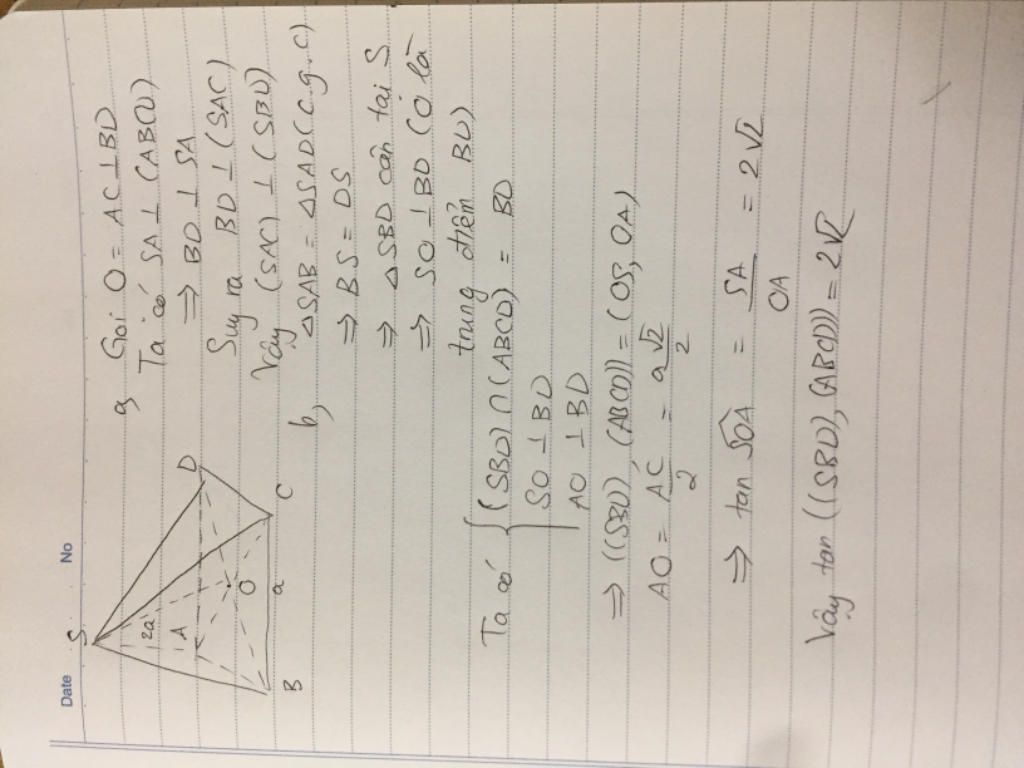 Date No
S
2a
A
D
O
B
a
C
a, Gọi O = AC ⊥ BD
Ta có SA ⊥ (ABCD)
⇒ BD ⊥ SA
Suy ra BD ⊥ (SAC)
Vậy (SAC) ⊥ (SBD)
b, △SAB = △SAD (c.g.c)
⇒ BS = DS
⇒ △SBD cân tại S
⇒ SO ⊥ BD (O là
trung điểm BD)
Ta có { (SBD) ∩ (ABCD) = BD
SO ⊥ BD
AO ⊥ BD
⇒ ((SBD) (ABCD)) = (OS, OA)
AO = AC/2 = a√2/2
⇒ tan SOA = SA/OA = 2√2
Vậy tan ((SBD), (ABCD)) = 2√2